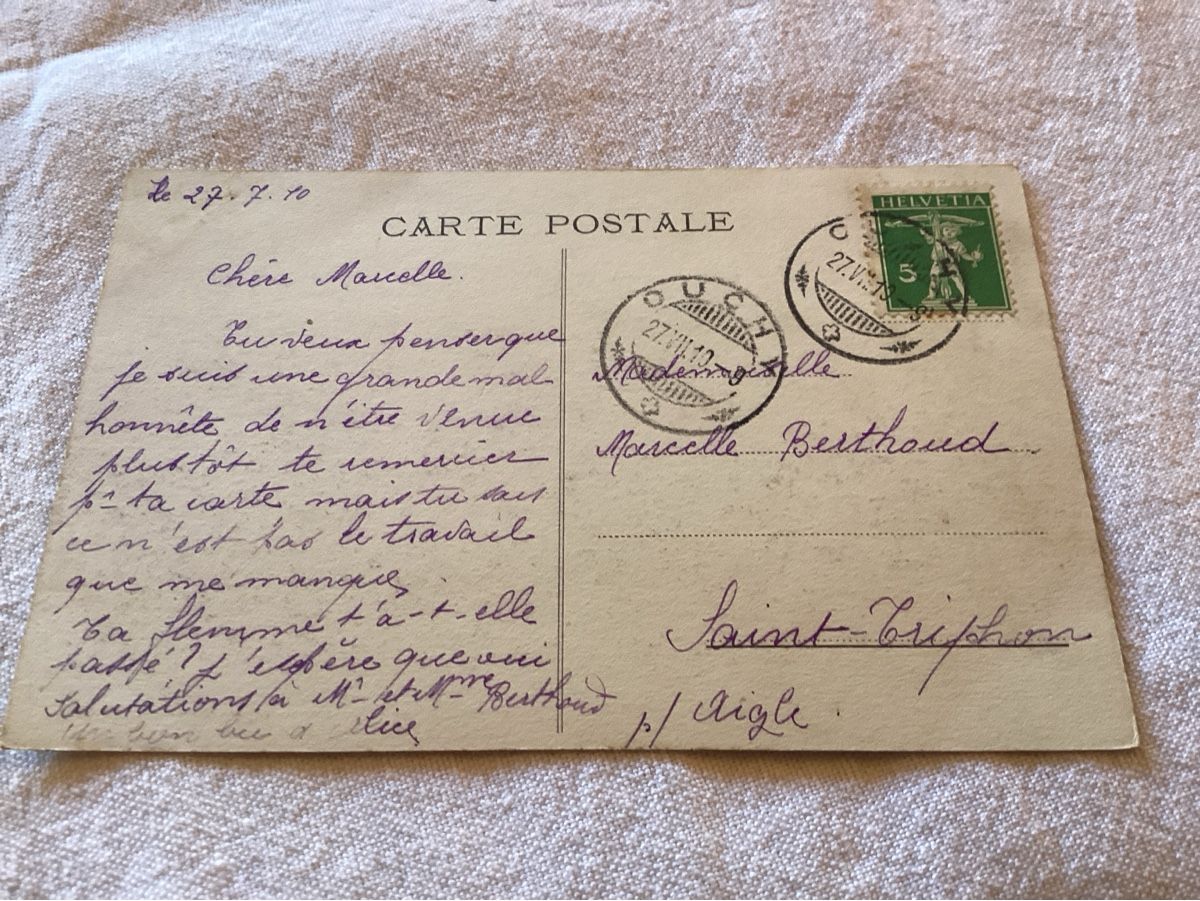 le 27.7.10
CARTE POSTALE
HELVETIA
5
OUCHY
27.VII.10-9
OUCHY
27.VII.10-9
Chère Marcelle.
Tu veux penser que
je suis une grande mal
honnête de n'être venue
plustôt te remercier
pr ta carte mais tu sais
ce n'est pas le travail
que me manque,
Ta flemme t'a-t-elle
passé? j'espère que oui
Salutations à Mr et Mme Berthoud
Un bon bec d'Alice
Mademoiselle
Marcelle Berthoud
Saint-Triphon
p/ Aigle.